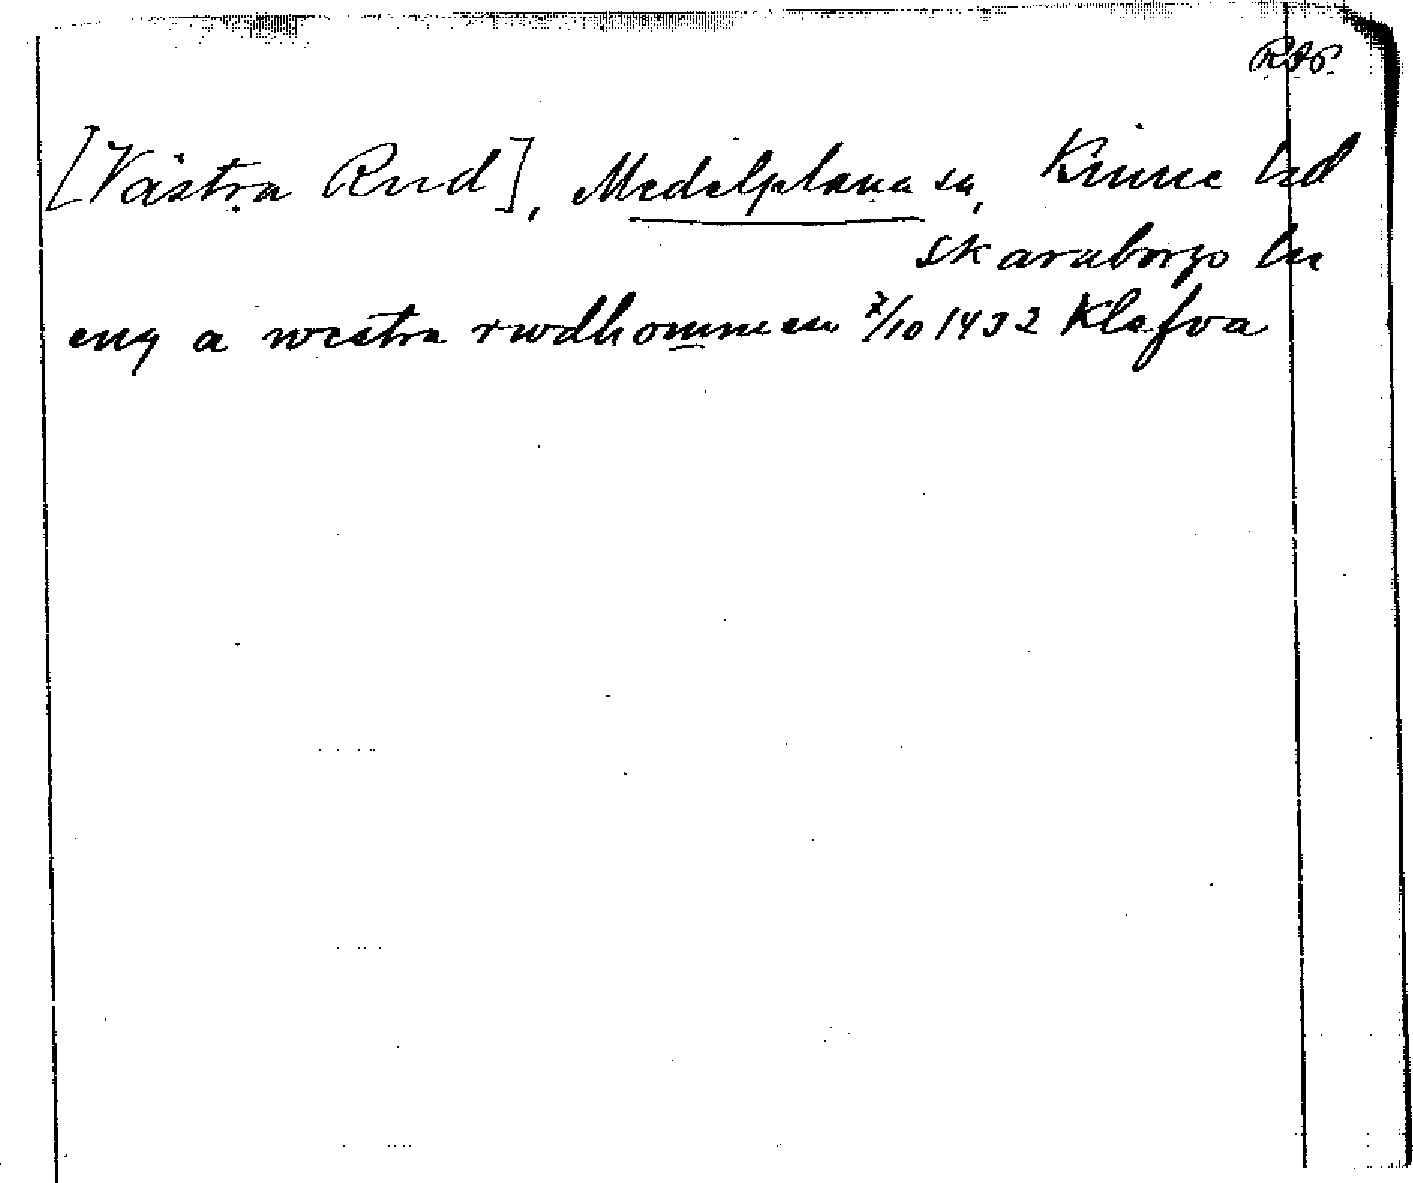 RAP.
[Västra Rud], Medelplana sn, Kinne hd
Skaraborgs län
eng a westra rwdhommen 7/10 1432 Klefva